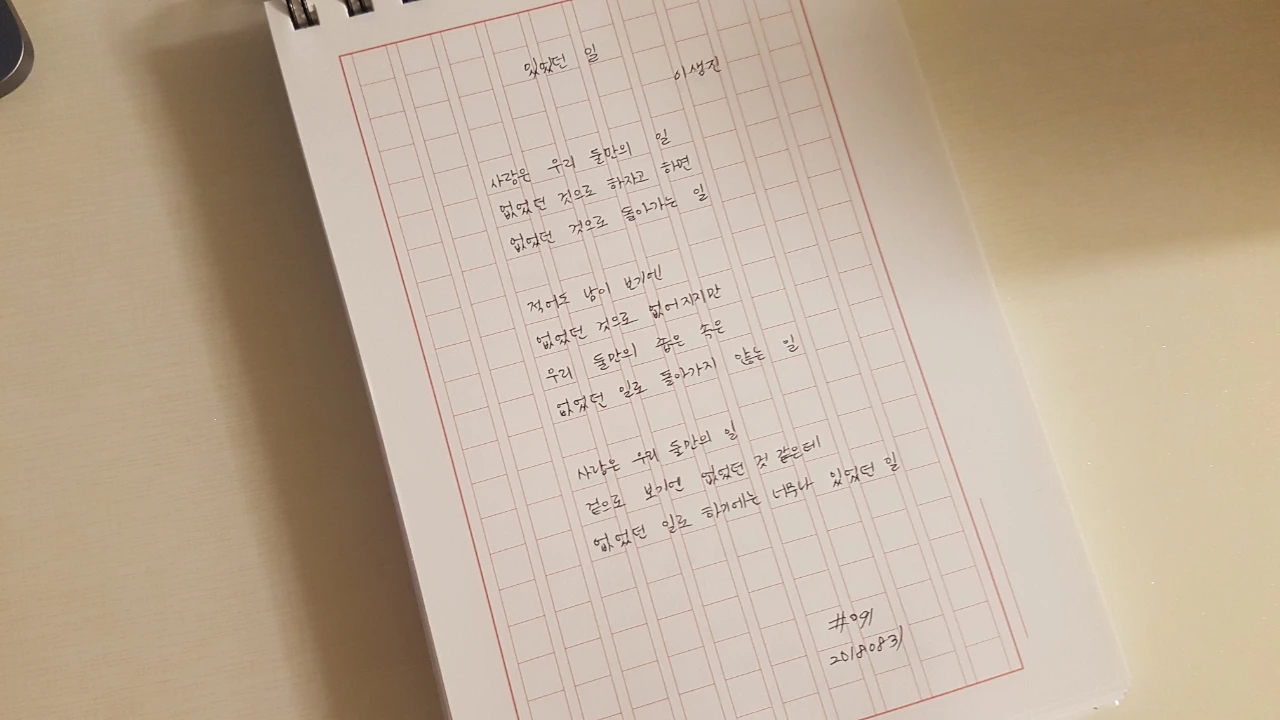 있었던 일
이생진
사랑은 우리 둘만의 일
없었던 것으로 하자고 하면
없었던 것으로 돌아가는 일
적어도 남이 보기엔
없었던 것으로 없어지지만
우리 둘만의 좁은 속은
없었던 일로 돌아가지 않는 일
사랑은 우리 둘만의 일
겉으로 보기엔 없었던 것 같은데
없었던 일로 하기에는 너무나 있었던 일
#091
20180831